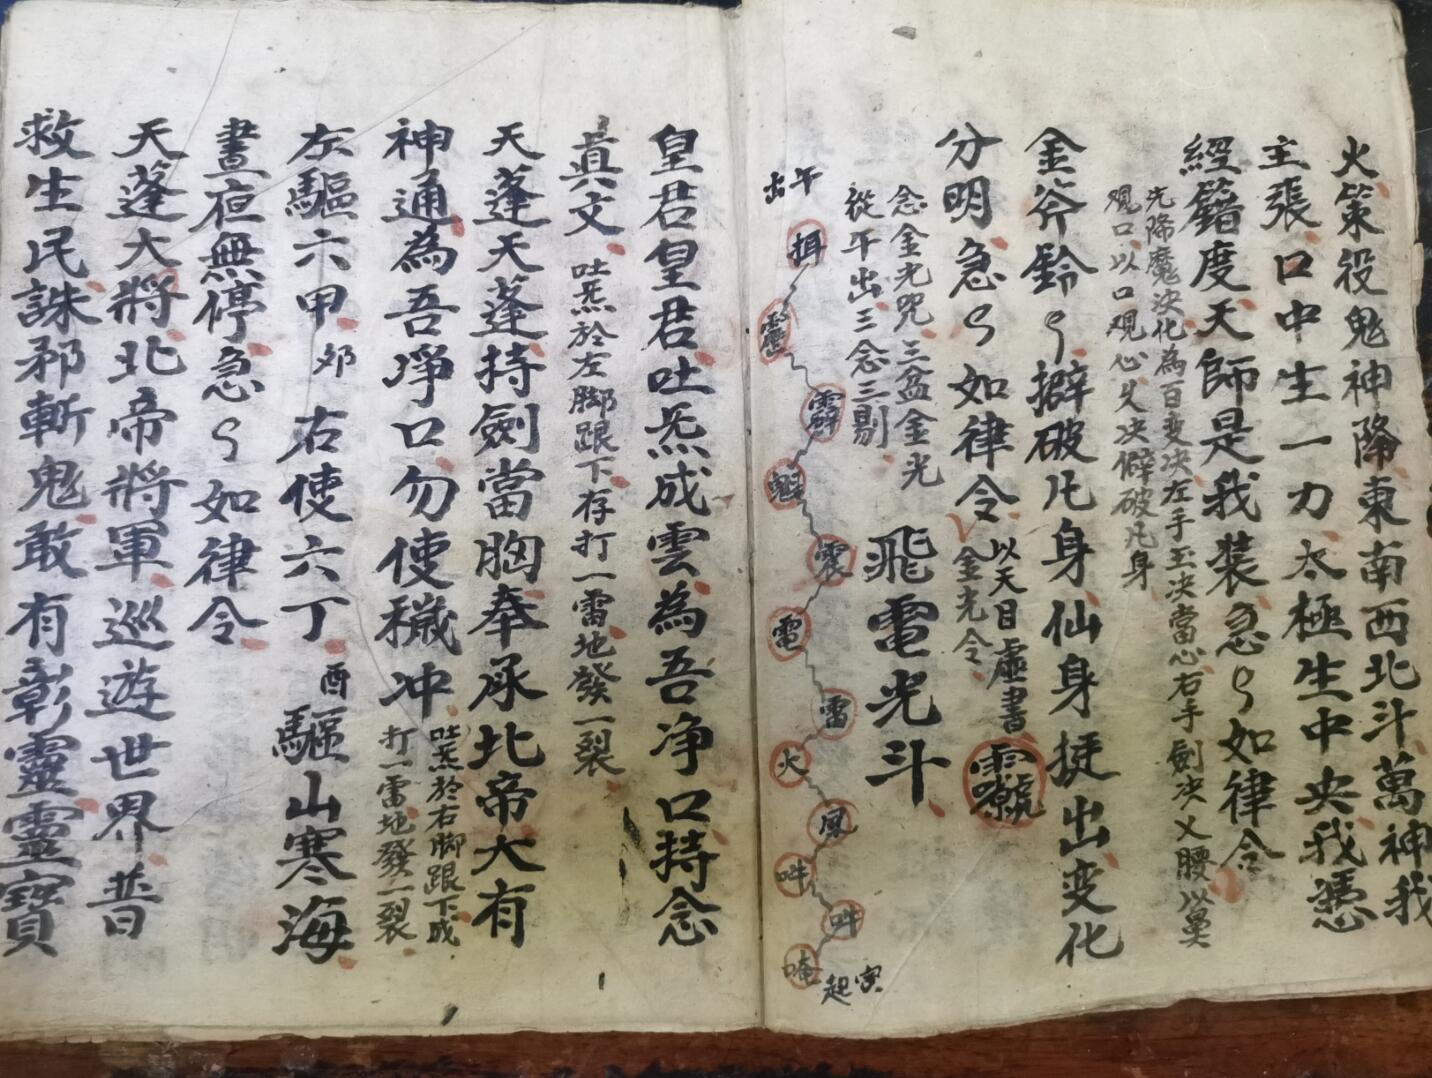 火策役鬼神降東南西北斗萬神我
主張口中生一力太極生中央我憑
經籍度天師是我裝急〻如律令
先降魔決化為百变決左手玉决當心右手劍决义腰以鼻
观口以口观心义决僻破凡身
金斧鈴〻擗破凡身仙身挺出变化
分明急〻如律令
以天目虛書
金光令
念金光咒三盆金光
從午出三念三剔
飛電光斗
午出
魁
震
電
雷
火
風
吽
吽
唵
寅起
皇君皇君吐炁成雲為吾净口持念
眞文
吐炁於左脚跟下存打一雷地發一裂
天蓬天蓬持劍當胸奉承北帝大有
神通為吾凈口勿使穢冲
吐炁於右脚跟下成
打一雷地發一裂
左驅六甲
右使六丁
酉
驅山寒海
晝夜無停急〻如律令
天蓬大將北帝將軍巡遊世界普
救生民誅邪斬鬼敢有彰靈靈寶